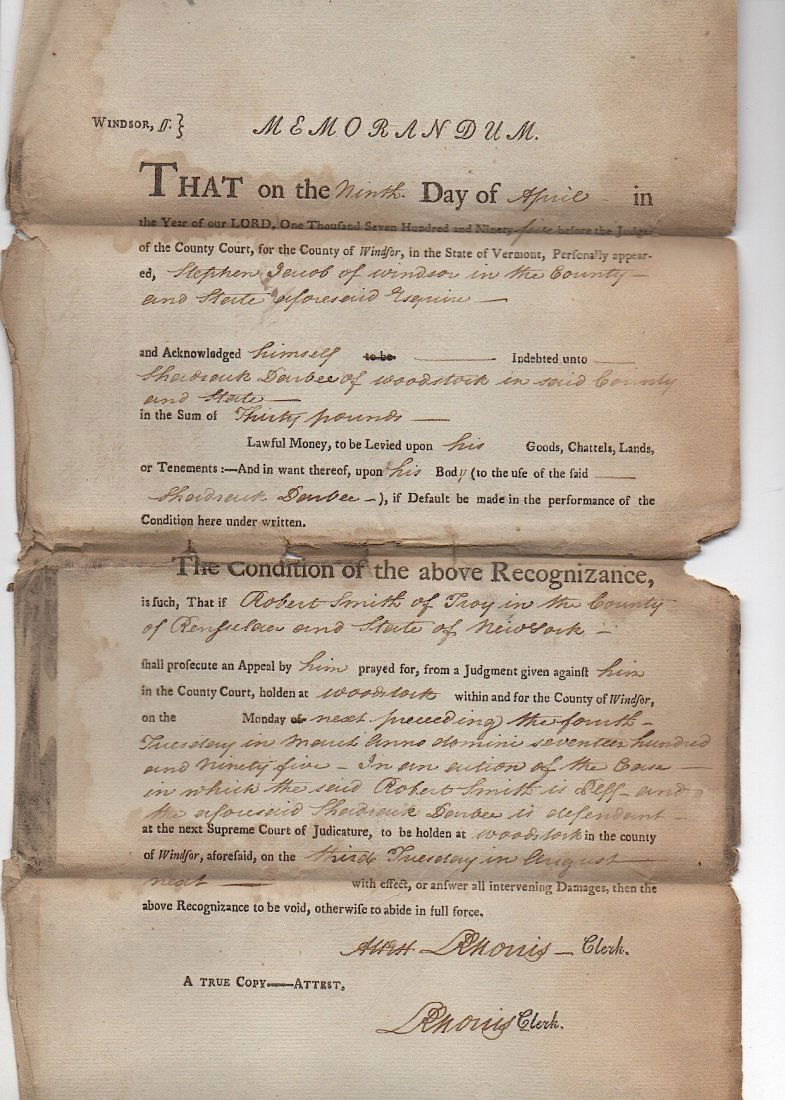 WINDSOR, ſſ. }
MEMORANDUM.
THAT on the Ninth Day of April in
the Year of our LORD, One Thousand Seven Hundred and Ninety-five before the Judges
of the County Court, for the County of Windſor, in the State of Vermont, Perſonally appear-
ed, Stephen Jacob of windsor in the County
and State aforesaid Esquire
and Acknowledged himself to be Indebted unto
Shadrack Darbee of woodstock in said County
and State
in the Sum of Thirty pounds
Lawful Money, to be Levied upon his Goods, Chattels, Lands,
or Tenements :—And in want thereof, upon his Body (to the uſe of the ſaid
Shadrack Darbee —), if Default be made in the performance of the
Condition here under written.
The Condition of the above Recognizance,
is ſuch, That if Robert Smith of Troy in the County
of Rensselaer and State of New York
ſhall proſecute an Appeal by him prayed for, from a Judgment given againſt him
in the County Court, holden at woodstock within and for the County of Windſor,
on the Monday of next preceeding the fourth
Tuesday in March Anno domini seventeen hundred
and Ninety five — In an action of the Case
in which the said Robert Smith is Plff and
the aforesaid Shadrack Darbee is defendant
at the next Supreme Court of Judicature, to be holden at woodstock in the county
of Windſor, aforeſaid, on the third Tuesday in August
next with effect, or anſwer all intervening Damages, then the
above Recognizance to be void, otherwiſe to abide in full force.
Attest Clerk.
A TRUE COPY——ATTEST,
Clerk.